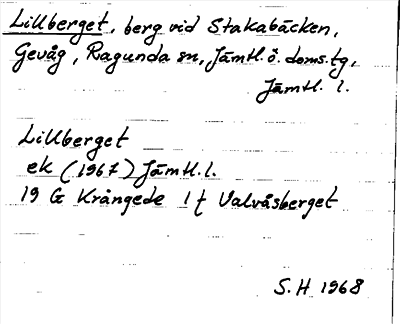 Lillberget, berg vid Stakabäcken,
Gevåg, Ragunda sn, Jämtl. ö. doms.tg,
Jämtl. l.
Lillberget
ek (1967) Jämtl. l.
19 G Krångede 1 f Valvåsberget
S.H 1968